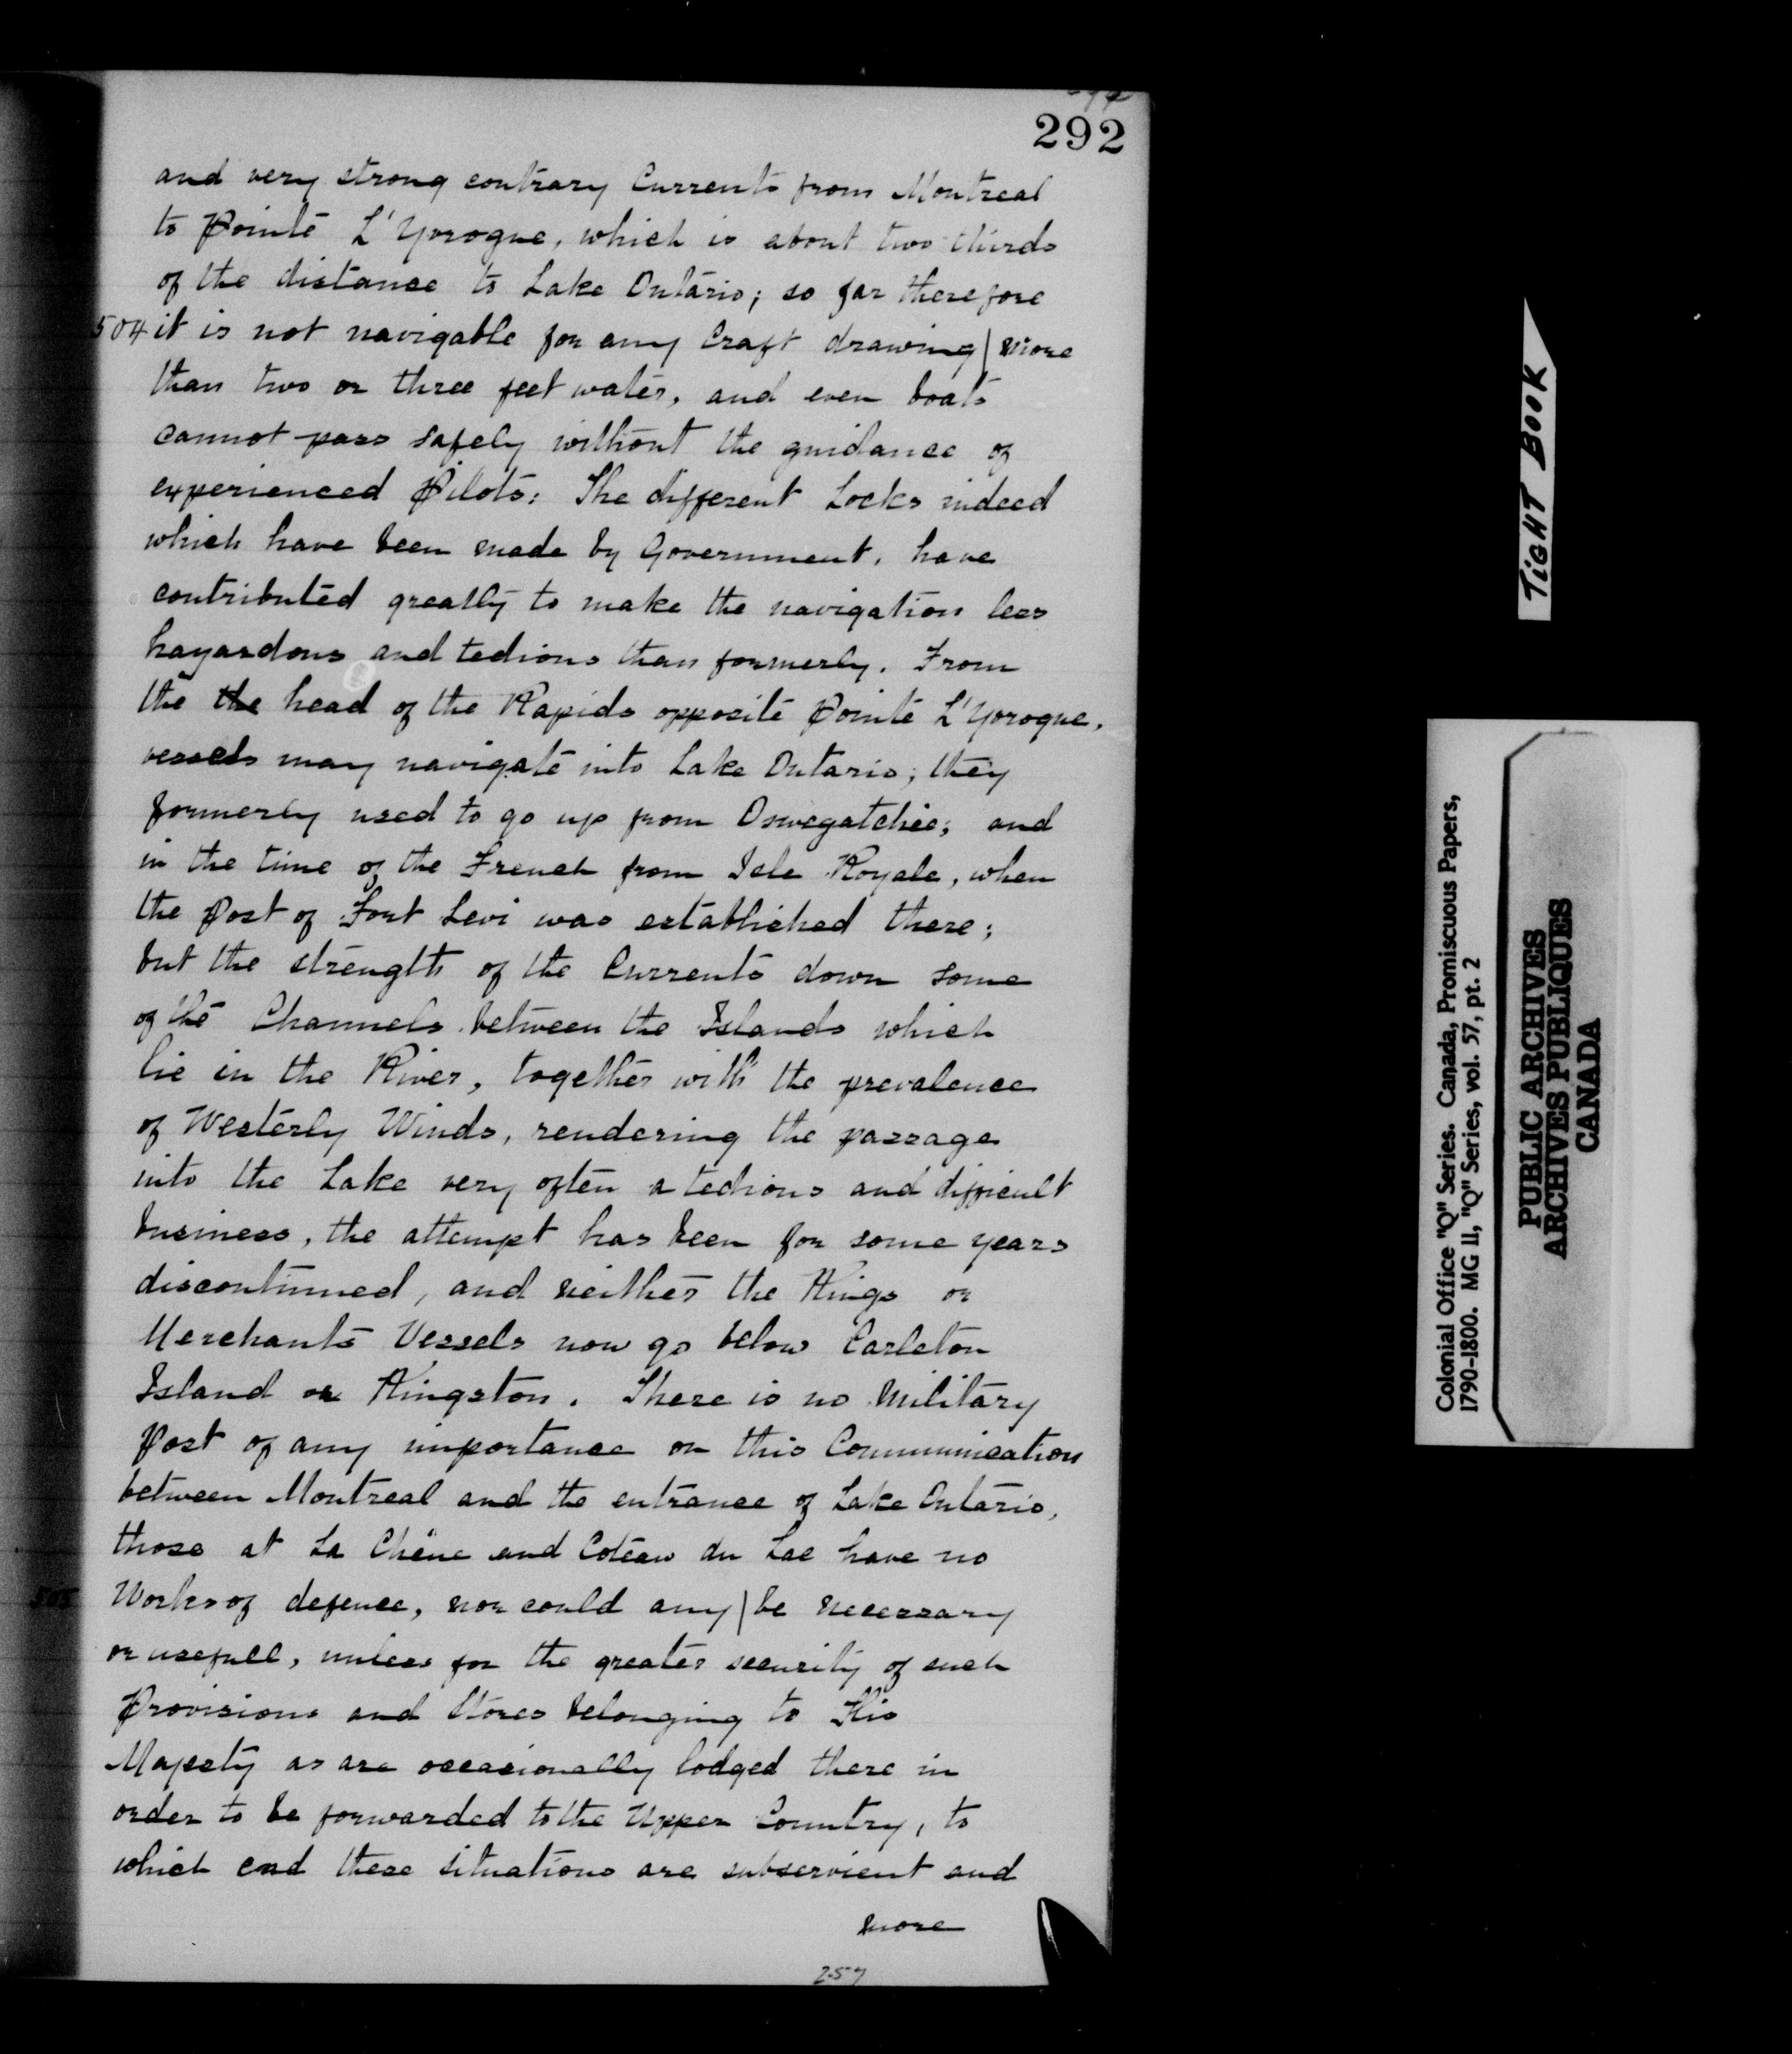 292
and very strong contrary Currents from Montreal
to Pointe L'Yvrogne, which is about two thirds
of the distance to Lake Ontario; so far therefore
504 it is not navigable for any Craft drawing | more
than two or three feet water, and even boats
cannot pass safely without the guidance of
experienced Pilots: The different Locks indeed
which have been made by Government, have
contributed greatly to make the navigation less
hazardous and tedious than formerly. From
the the head of the Rapids opposite Pointe L'Yvrogne,
vessels may navigate into Lake Ontario; they
formerly used to go up from Oswegatchie; and
in the time of the French from Isle Royale, when
the Post of Fort Levi was established there;
but the strength of the Currents down some
of the Channels between the Islands which
lie in the River, together with the prevalence
of Westerly Winds, rendering the passage
into the Lake very often a tedious and difficult
business, the attempt has been for some years
discontinued, and neither the Kings or
Merchants Vessels now go below Carleton
Island or Kingston. There is no Military
Post of any importance on this Communication
between Montreal and the entrance of Lake Ontario,
those at La Chêne and Coteau du Lac have no
505 Works of defence, nor could any | be necessary
or usefull, unless for the greater security of such
Provisions and Stores belonging to His
Majesty as are occasionally lodged there in
order to be forwarded to the Upper Country, to
which end these situations are subservient and
more
257
TIGHT BOOK
Colonial Office "Q" Series. Canada, Promiscuous Papers,
1790-1800. MG 11, "Q" Series, vol. 57, pt. 2
PUBLIC ARCHIVES
ARCHIVES PUBLIQUES
CANADA